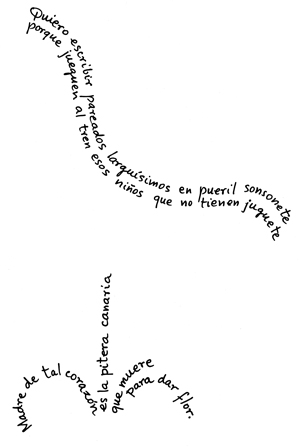 Quiero escribir pareados larguísimos en pueril sonsonete
porque jueguen al tren esos niños que no tienen juguete
Madre de tal corazón
es la pitera canaria
que muere
para dar flor.